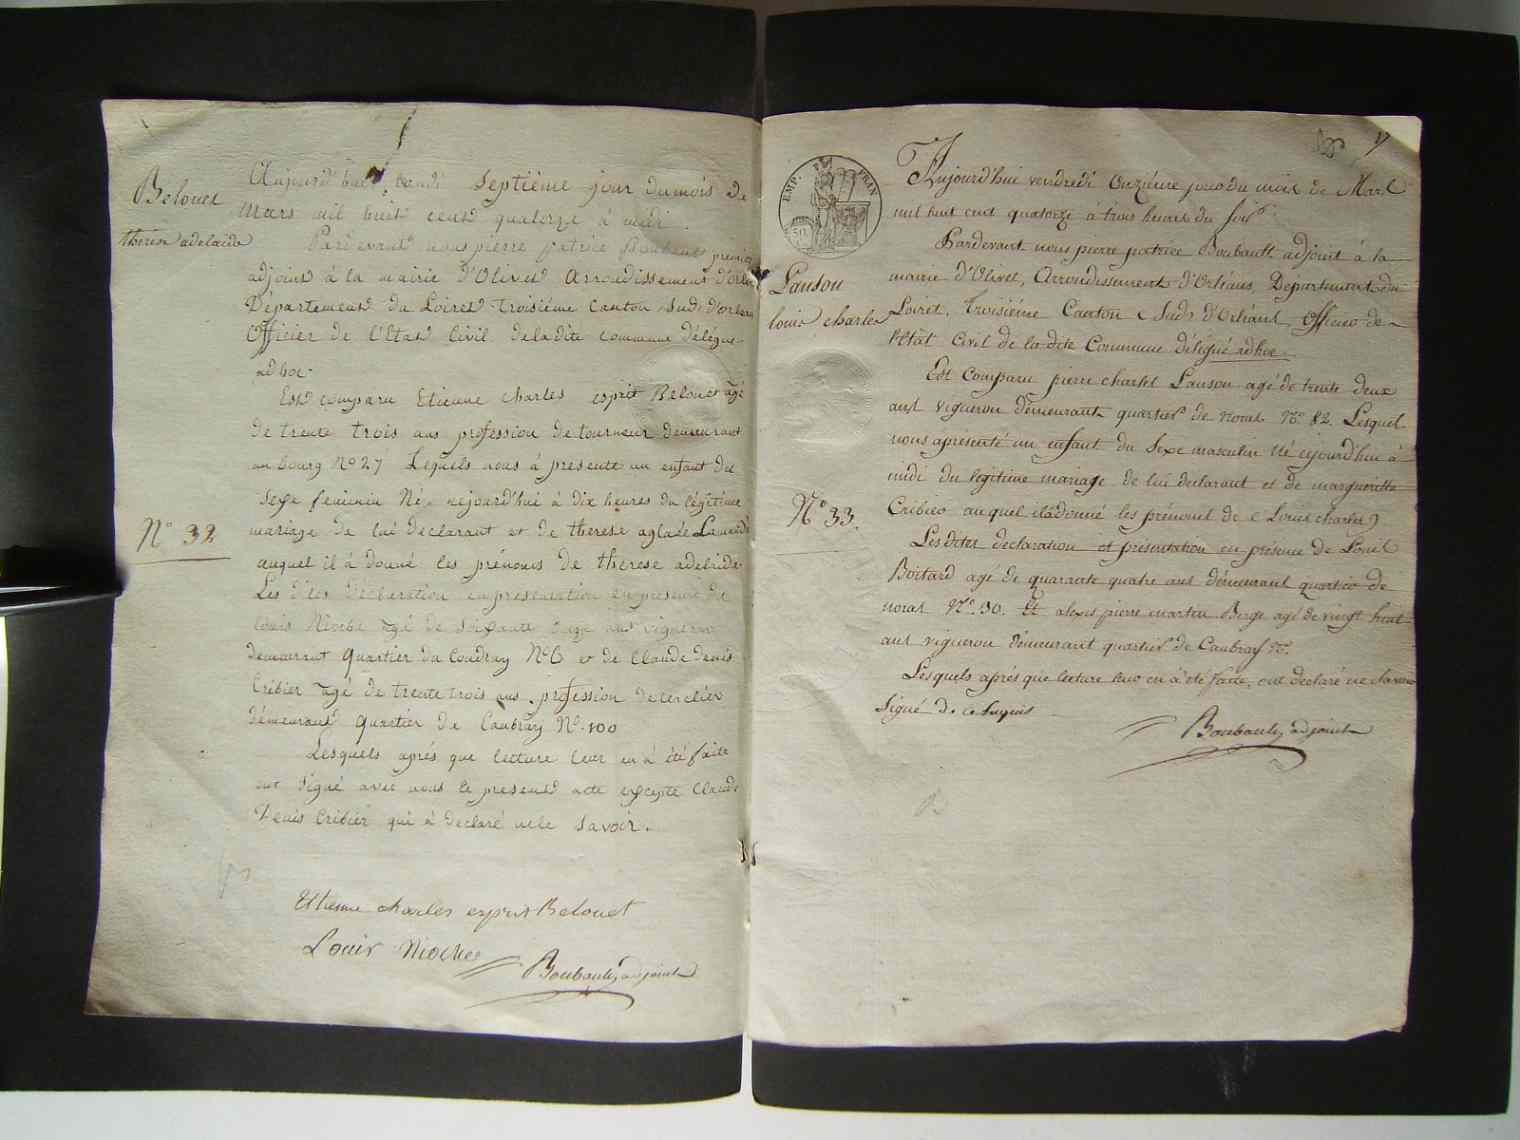 Belouet
therese adelaide
N° 32
Aujourd'hui Lundi Septième jour du mois de
Mars mil huit cent quatorze à midi.
Pardevant nous pierre patrice Boubault premier
adjoint à la mairie d'Olivet arrondissement d'Orleans
Département du Loiret troisième Canton Sud d'Orleans
Officier de l'Etat Civil de la dite commune délégué
ad hoc.
Est comparu Etienne Charles esprit Belouet agé
de trente trois ans profession de tourneur demeurant
au bourg N° 27 Lequels nous à présenté un enfant du
Sexe feminin Né cejourd'hui à dix heures du légitime
mariage de lui declarant et de therese aglaée
auquel il à donné les prénoms de therese adelaide
Les dites déclaration et présentation en présence de
Louis Nioche agé de Soixante ans vigneron
demeurant quartier du Coudray N° 6 et de Claude denis
Cribier agé de trente trois ans profession de cerclier
démeurant quartier de Caubray N°. 100
Lesquels aprés que lecture leur en à été faite
ont signé avec nous le present acte excepté Claude
Denis Cribier qui à declaré ne le savoir.
Etienne charles esprit Belouet
Louis Nioche
Boubault adjoint
17
EMP. FRAN
Lanson
louis charles
N° 33
Aujourd'hui vendredi Onzieme jour du mois de Mars
mil huit cent quatorze à trois heures du soir
Pardevant nous pierre patrice Boubault adjoint à la
mairie d'Olivet, Arrondissement d'Orléans, Departement du
Loiret, troisième Canton (Sud) d'Orléans, Officier de
l'Etat Civil de la dite Commune délégué ad hoc.
Est Comparu pierre charles Lanson agé de trente deux
ans vigneron démeurant quartier de noras N° 82. Lesquel
nous a présenté un enfant du Sexe masculin né cejourd'hui à
midi du légitime mariage de lui declarant et de margueritte
Cribier auquel il à donné les prénoms de (Louis charles)
Les dites declaration et présentation en présence de Louis
Boitard agé de quarante quatre ans démeurant quartier de
noras N°. 30. Et alexis pierre martin Berge agé de vingt huit
ans vigneron démeurant quartier de Caubray N°.
Lesquels aprés que lecture leur en à été faite, ont declaré ne savoir
Signé de ce requis
Boubault adjoint